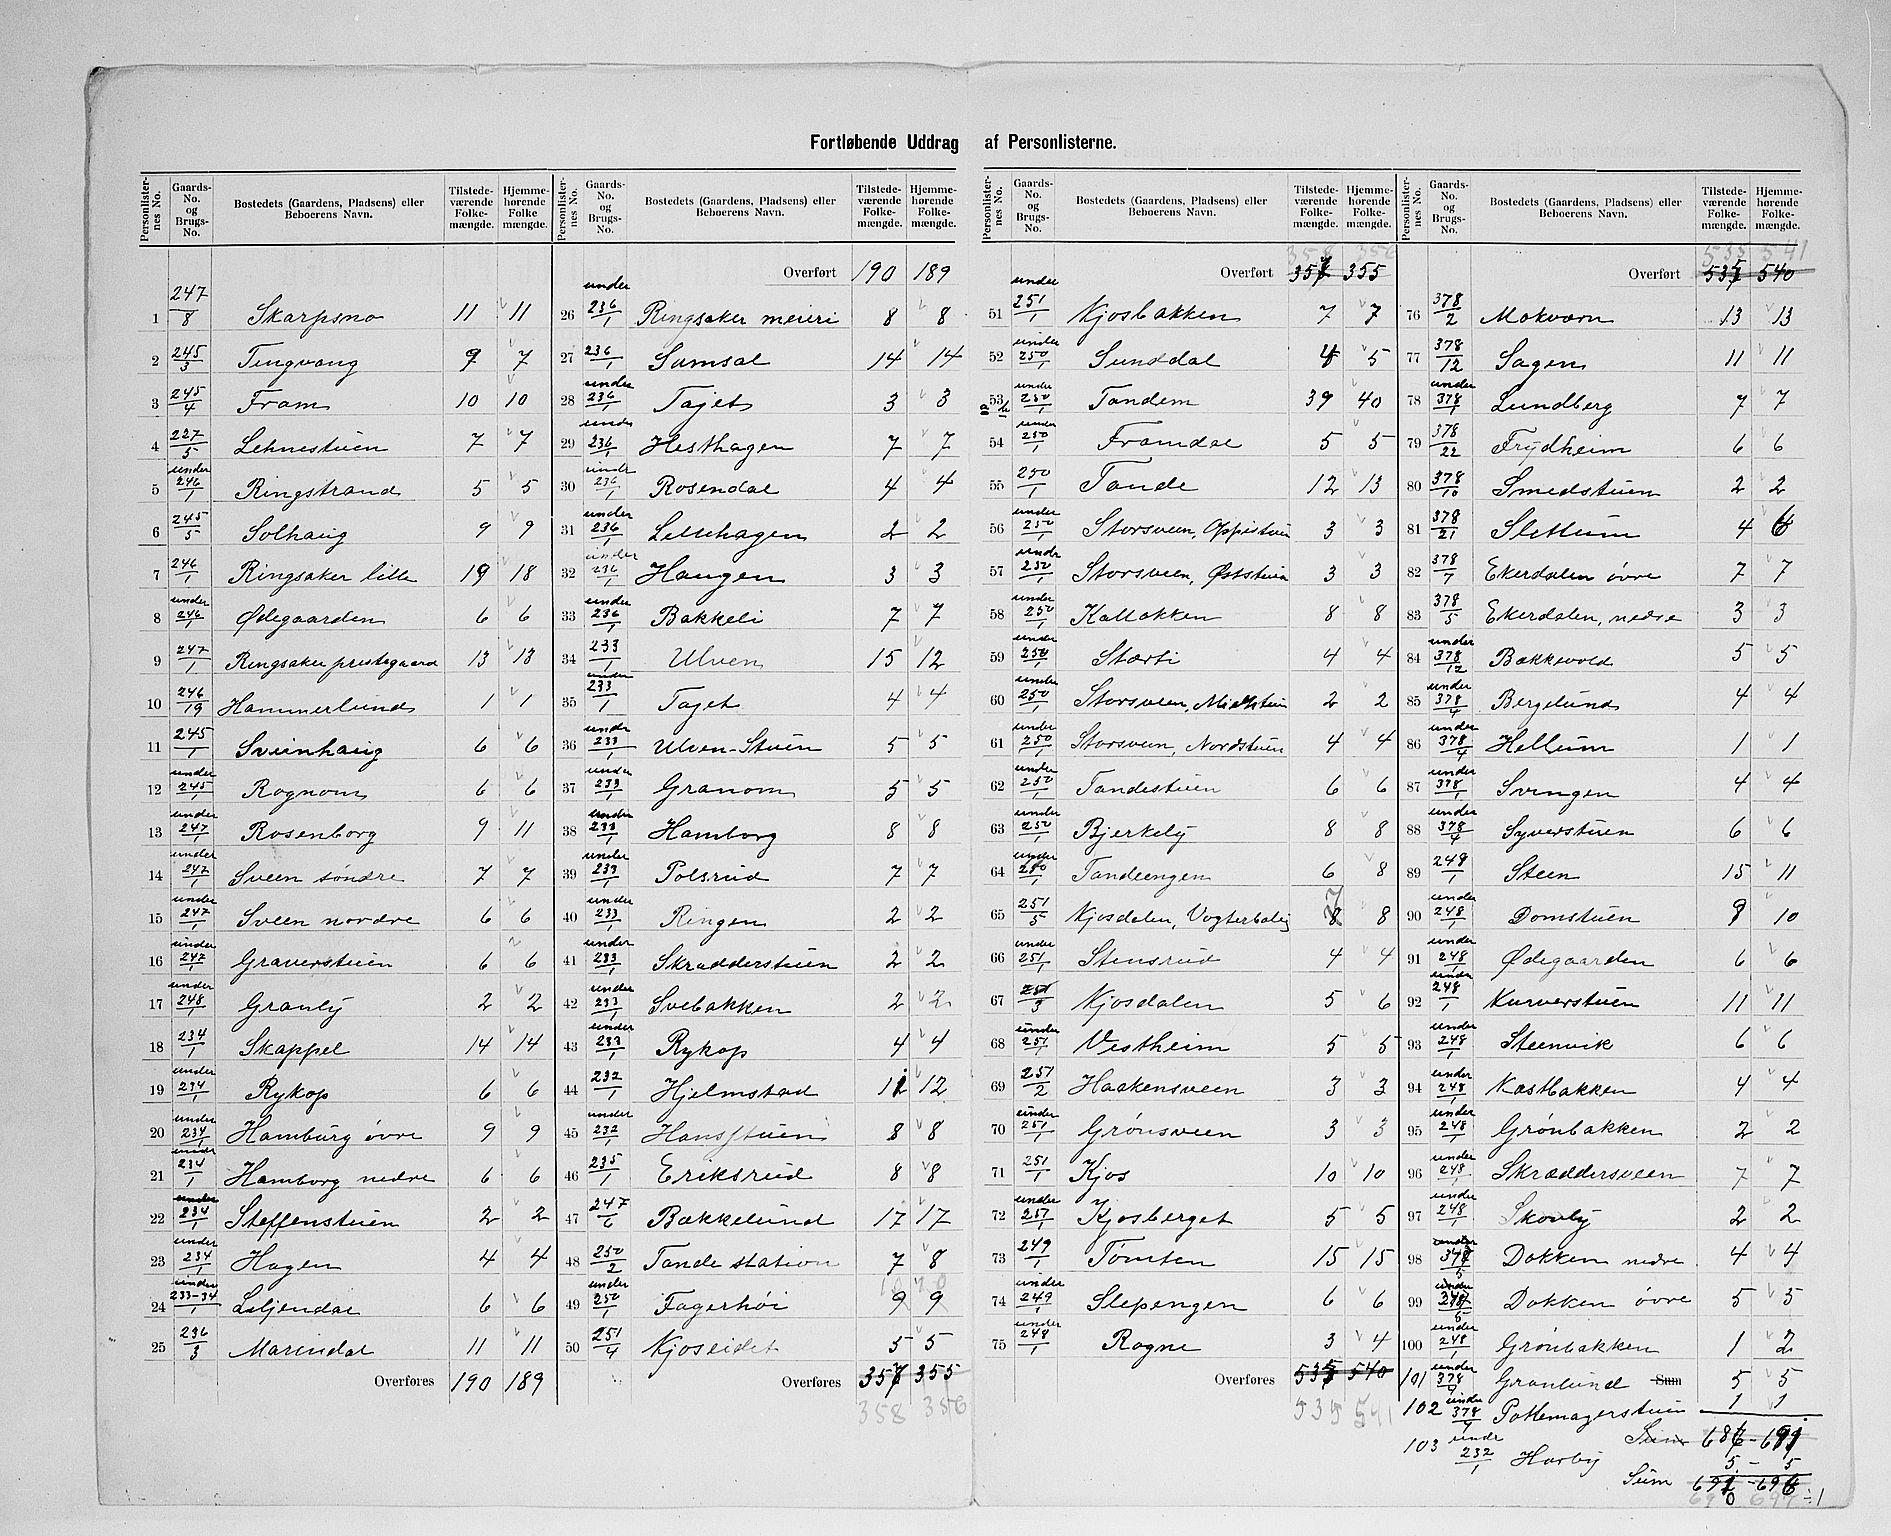 Fortløbende Uddrag af Personlisterne.
Personlister-nes No. | Gaards-No. og Brugs-No. | Bostedets (Gaardens, Pladsens) eller Beboerens Navn. | Tilstede-værende Folke-mængde. | Hjemme-hørende Folke mængde.
1 247/8 Skarpsno 11 11
2 245/3 Tingvang 9 7
3 245/4 Fram 10 10
4 227/5 Lehnestuen 7 7
5 under 246/1 Ringstrand 5 5
6 245/5 Solhaug 9 9
7 246/1 Ringsaker lille 19 18
8 under 246/1 Ødegaarden 6 6
9 247/1 Ringsaker prestegaard 13 13
10 246/19 Hammerlund 1 1
11 245/1 Sveinhaug 6 6
12 under 245/1 Rognom 6 6
13 under 247/1 Rosenborg 9 11
14 under 247/1 Sveen søndre 7 7
15 under 247/1 Sveen nordre 6 6
16 under 247/1 Graverstuen 6 6
17 under 248/1 Granly 2 2
18 234/1 Skappel 14 14
19 under 234/1 Rykop 6 6
20 under 234/1 Hamburg øvre 9 9
21 under 234/1 Hamborg nedre 6 6
22 under 234/1 Steffenstuen 2 2
23 under 234/1 Hagen 4 4
24 under 233-34/1 Liljendal 6 6
25 236/3 Marendal 11 11
Overføres 190 189
Personlister-nes No. | Gaards-No. og Brugs-No. | Bostedets (Gaardens, Pladsens) eller Beboerens Navn. | Tilstede-værende Folke-mængde. | Hjemme-hørende Folke-mængde.
Overført 190 189
26 under 236/1 Ringsaker meieri 8 8
27 236/1 Samsal 14 14
28 under 236/1 Tajet 3 3
29 under 236/1 Hesthagen 7 7
30 under 236/1 Rosendal 4 4
31 under 236/1 Lillehagen 2 2
32 under 236/1 Haugen 3 3
33 under 236/1 Bakkeli 7 7
34 233/1 Ulven 15 12
35 under 233/1 Taget 4 4
36 under 233/1 Ulven-Stuen 5 5
37 under 233/1 Granom 5 5
38 under 233/1 Hamborg 8 8
39 under 233/1 Polsrud 7 7
40 under 233/1 Ringen 2 2
41 under 233/1 Skrædderstuen 2 2
42 under 233/1 Svebakken 2 2
43 under 233/1 Rykop 4 4
44 232/1 Hjelmstad 12
45 under 232/1 Hansstuen 8 8
46 235/1 Eriksrud 8 8
47 247/6 Bækkelund 17 17
48 250/2 Tande station 7 8
49 under 250/1 Fagerhøi 9 9
50 251/4 Kjoseidet 5 5
Overføres 357 355
358 356
Personlister-nes No. | Gaards-No. og Brugs-No. | Bostedets (Gaardens, Pladsens) eller Beboerens Navn. | Tilstede-værende Folke-mængde. | Hjemme-hørende Folke-mængde.
358 356
Overført 357 355
51 under 251/1 Kjosbakken 7 7
52 under 250/1 Sunddal 5
53 under 250/1 Tandem 39 40
54 under 250/1 Framdal 5 5
55 250/1 Tande 12 13
56 under 250/1 Storsveen, Oppistuen 3 3
57 under 250/1 Storsveen, Øststuen 3 3
58 under 250/1 Kalbakken 8 8
59 under 250/1 Starti 4 4
60 under 250/1 Storsveen, Midtstuen 2 2
61 under 250/1 Storsveen, Nordstuen 4 4
62 under 250/1 Tandestuen 6 6
63 under 250/1 Bjerkely 8 8
64 under 250/1 Tandeengen 6 8
65 251/5 Kjosdalen, Vogterbolig 7 8 8
66 under 251/1 Stensrud 4 4
67 251/3 Kjosdalen 5 6
68 under 251/1 Vestheim 5 5
69 251/2 Haakensveen 3 3
70 under 251/1 Grønsveen 3 3
71 251/1 Kjos 10 10
72 under 251/1 Kjosberget 5 5
73 249/1 Tømten 15 15
74 under 249/1 Slepengen 6 6
75 under 248/1 Rogne 3 4
Overføres 535 540
535 541
Personlister-nes No. | Gaards-No. og Brugs-No. | Bostedets (Gaardens, Pladsens) eller Beboerens Navn. | Tilstede-værende Folke-mængde. | Hjemme-hørende Folke-mængde.
535 541
Overført 535 540
76 378/2 Mokværn 13 13
77 378/12 Sagen 11 11
78 under 378/1 Lundberg 7 7
79 378/22 Frydheim 6 6
80 378/10 Smedstuen 2 2
81 378/21 Slettum 4 6
82 378/7 Ekerdalen øvre 7 7
83 378/5 Ekerdalen, nedre 3 3
84 under 378/12 Bækkevold 5 5
85 under 378/4 Bergelund 4 4
86 under 378/4 Hellum 1 1
87 under 378/1 Svingen 4 4
88 under 378/4 Syverstuen 6 6
89 248/1 Steen 15 11
90 under 248/1 Domstuen 9 10
91 under 248/1 Ødegaarden 6 6
92 under 248/1 Kurverstuen 11 11
93 under 248/1 Steenvik 6 6
94 under 248/1 Kastbakken 4 4
95 under 248/1 Grønbakken 2 2
96 under 248/1 Skræddersveen 7 7
97 under 248/1 Skovly 2 2
98 under 378/5 Dokken nedre 4 4
99 under 378/5 Dokken øvre 5 5
100 under 248/1 Grønbakken 1 2
101 under 378/9 Granlund Sum 5 5
102 under 378/9 Pottemagerstuen 1 1
Sum 686 - 691
103 under 232/1 Harby 5 - 5
Sum 691 - 696
690 696 ÷1